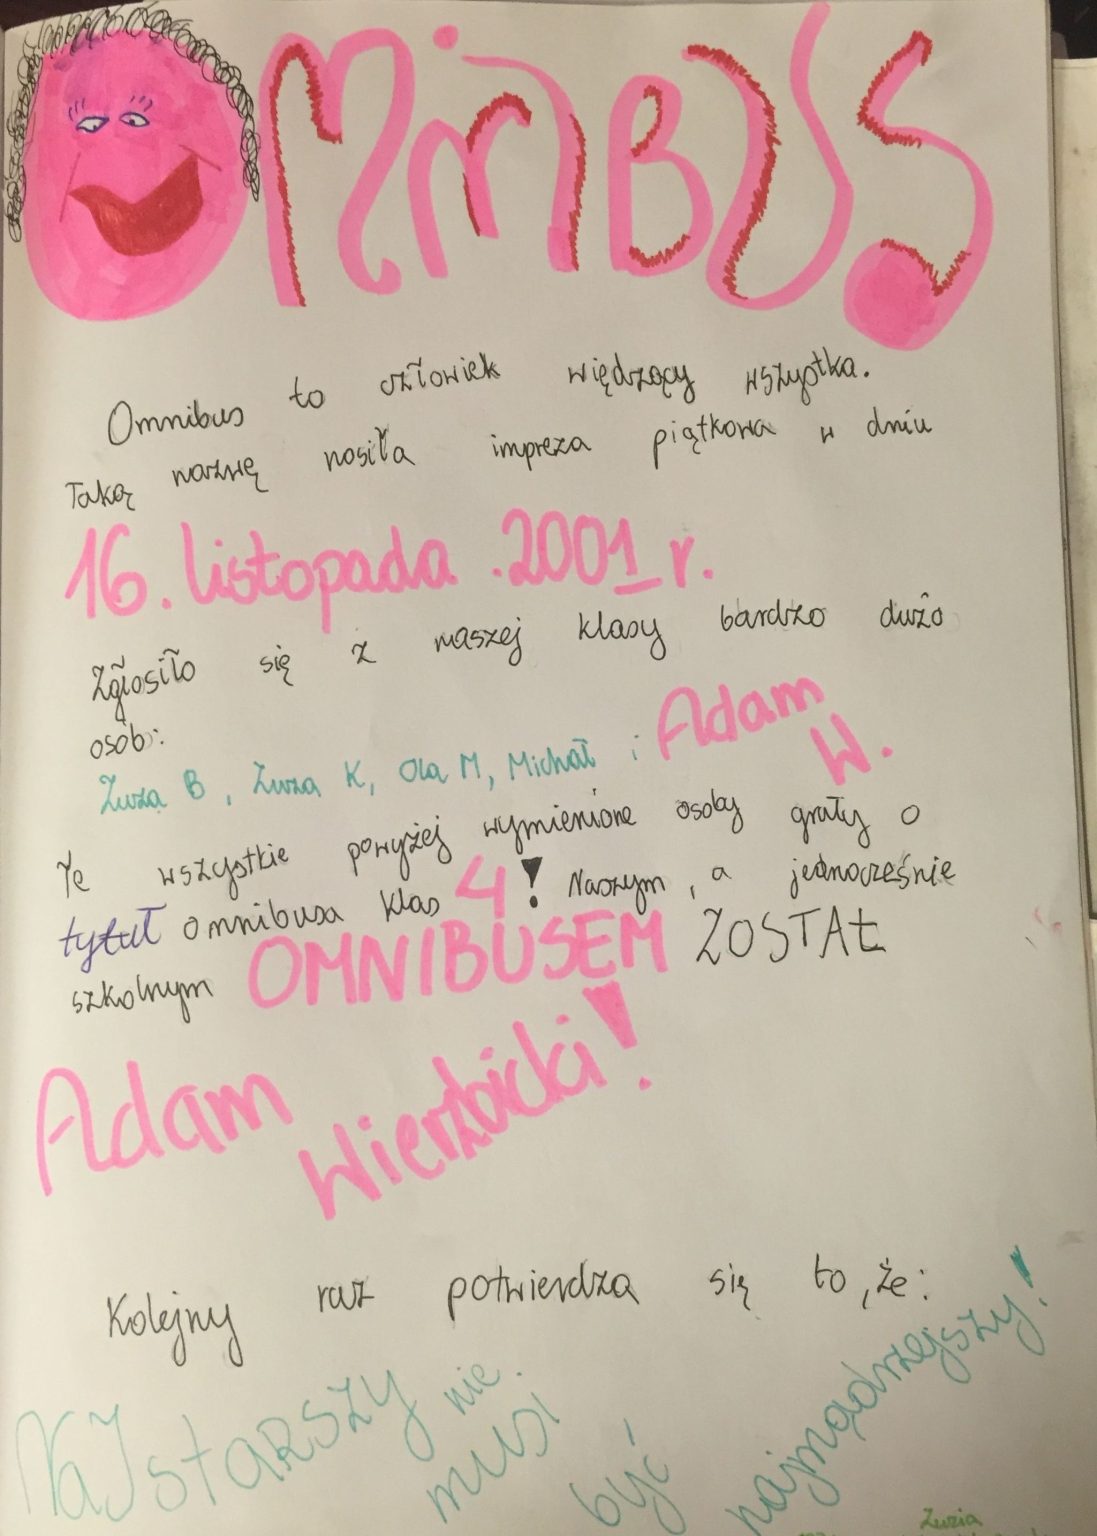 OMNiBUS
Omnibus to człowiek więdzący wszystka.
Taką nazwę nosiła impreza piątkowa w dniu
16. listopada .2001 r.
Zgłosiło się z naszej klasy bardzo dużo
osób:
Zuza B, Zuza K, Ola M, Michał i Adam
W.
Te wszystkie powyżej wymienione osoby grały o
tytuł omnibusa klas 4! Naszym, a jednocześnie
szkolnym OMNIBUSEM ZOSTAŁ
Adam
Wierzbicki!
Kolejny raz potwierdza się to, że:
NAJSTARSZY nie
musi
być
najmądrzejszy!
Zuzia